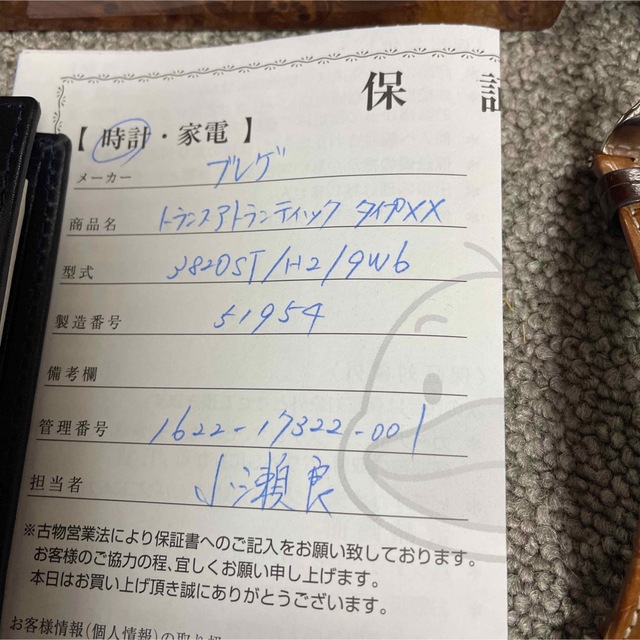 保 証
【 時計・家電 】
メーカー ブレゲ
商品名 トランスアトランティック タイプXX
型式 3820ST/H2/9W6
製造番号 51954
備考欄
管理番号 1622-17322-001
担当者 小瀬良
※古物営業法により保証書へのご記入をお願い致しております。
お客様のご協力の程、宜しくお願い申し上げます。
本日はお買い上げ頂き誠にありがとうございます。
お客様情報(個人情報)の取り扱